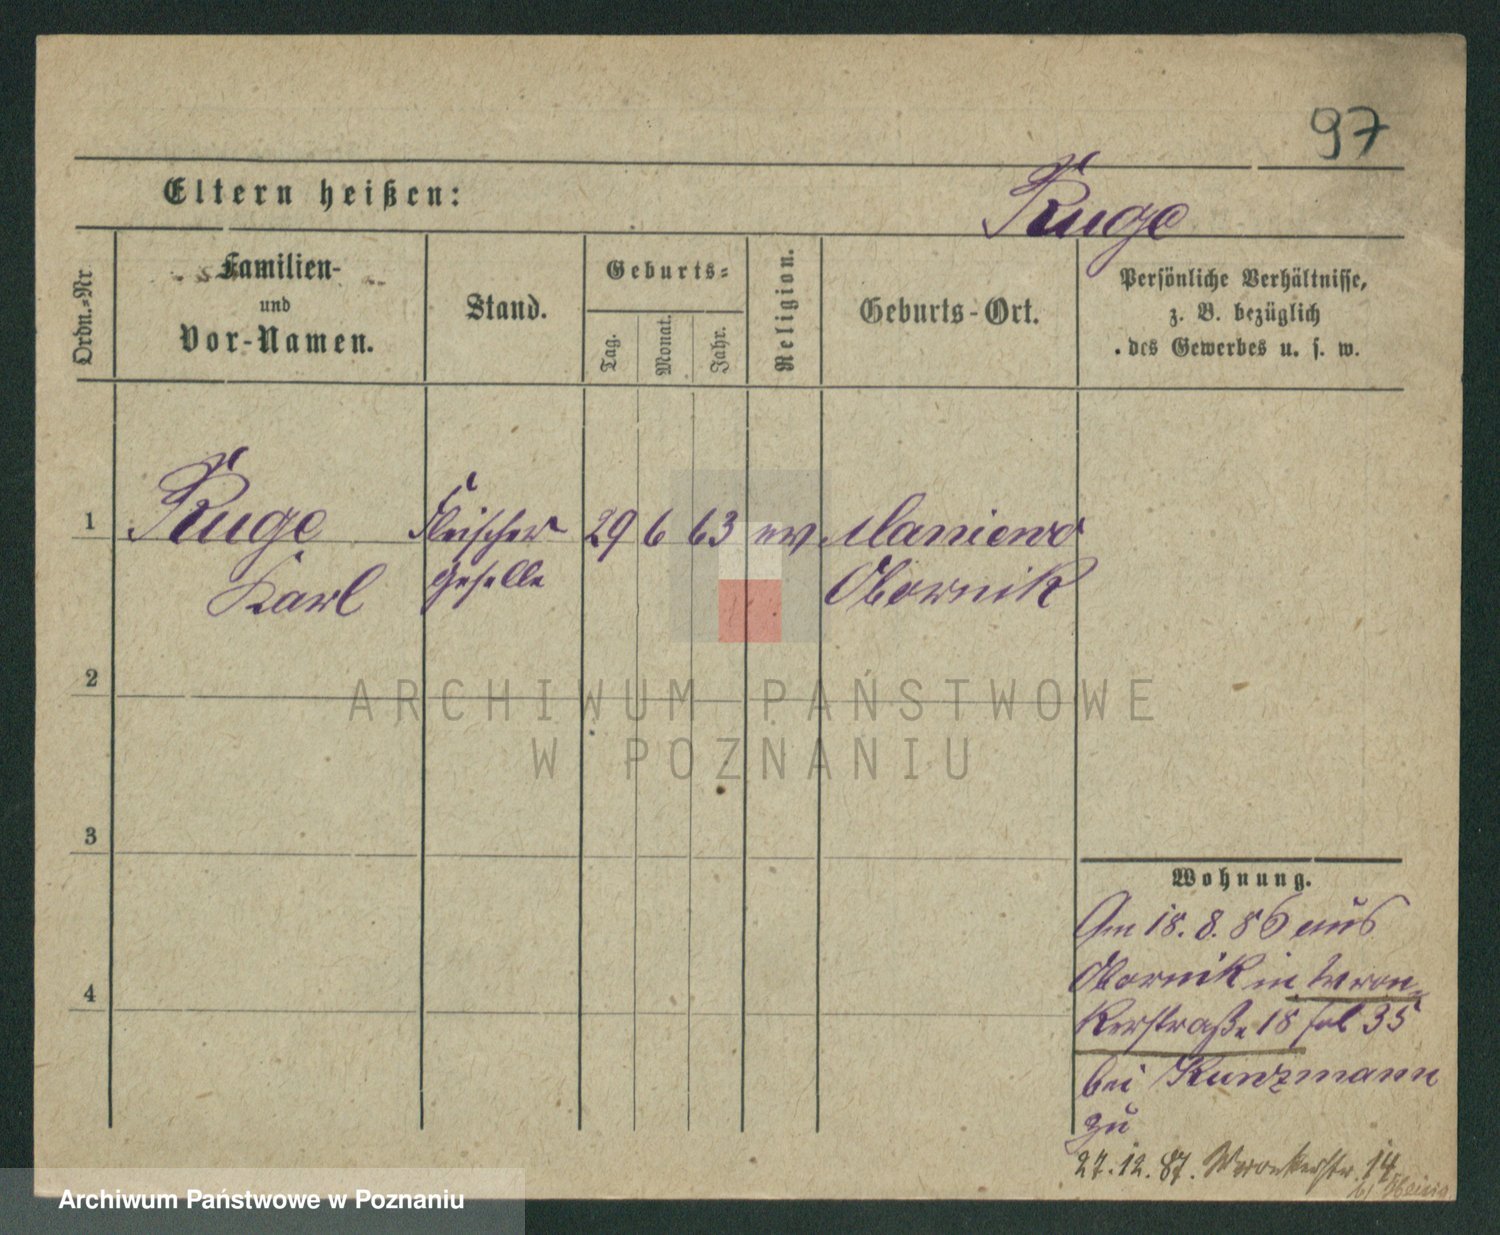 97
Eltern heißen:
Ruge
Ordn.-Nr
Familien-
und
Vor-Namen.
Stand.
Geburts-
Tag.
Monat.
Jahr.
Religion.
Geburts-Ort.
Persönliche Verhältnisse,
z. B. bezüglich
des Gewerbes u. s. w.
1
Ruge
Karl
Fleischer
geselle
29 6 63 ev
Maniewo
Obornik
2
3
4
ARCHIWUM PAŃSTWOWE
W POZNANIU
Wohnung.
Am 18. 8. 86 aus
Obornik in Wron-
kerstraße 18 fol 35
bei Kunzmann
zu
27.12.87. Wronkerstr. 14
Archiwum Państwowe w Poznaniu